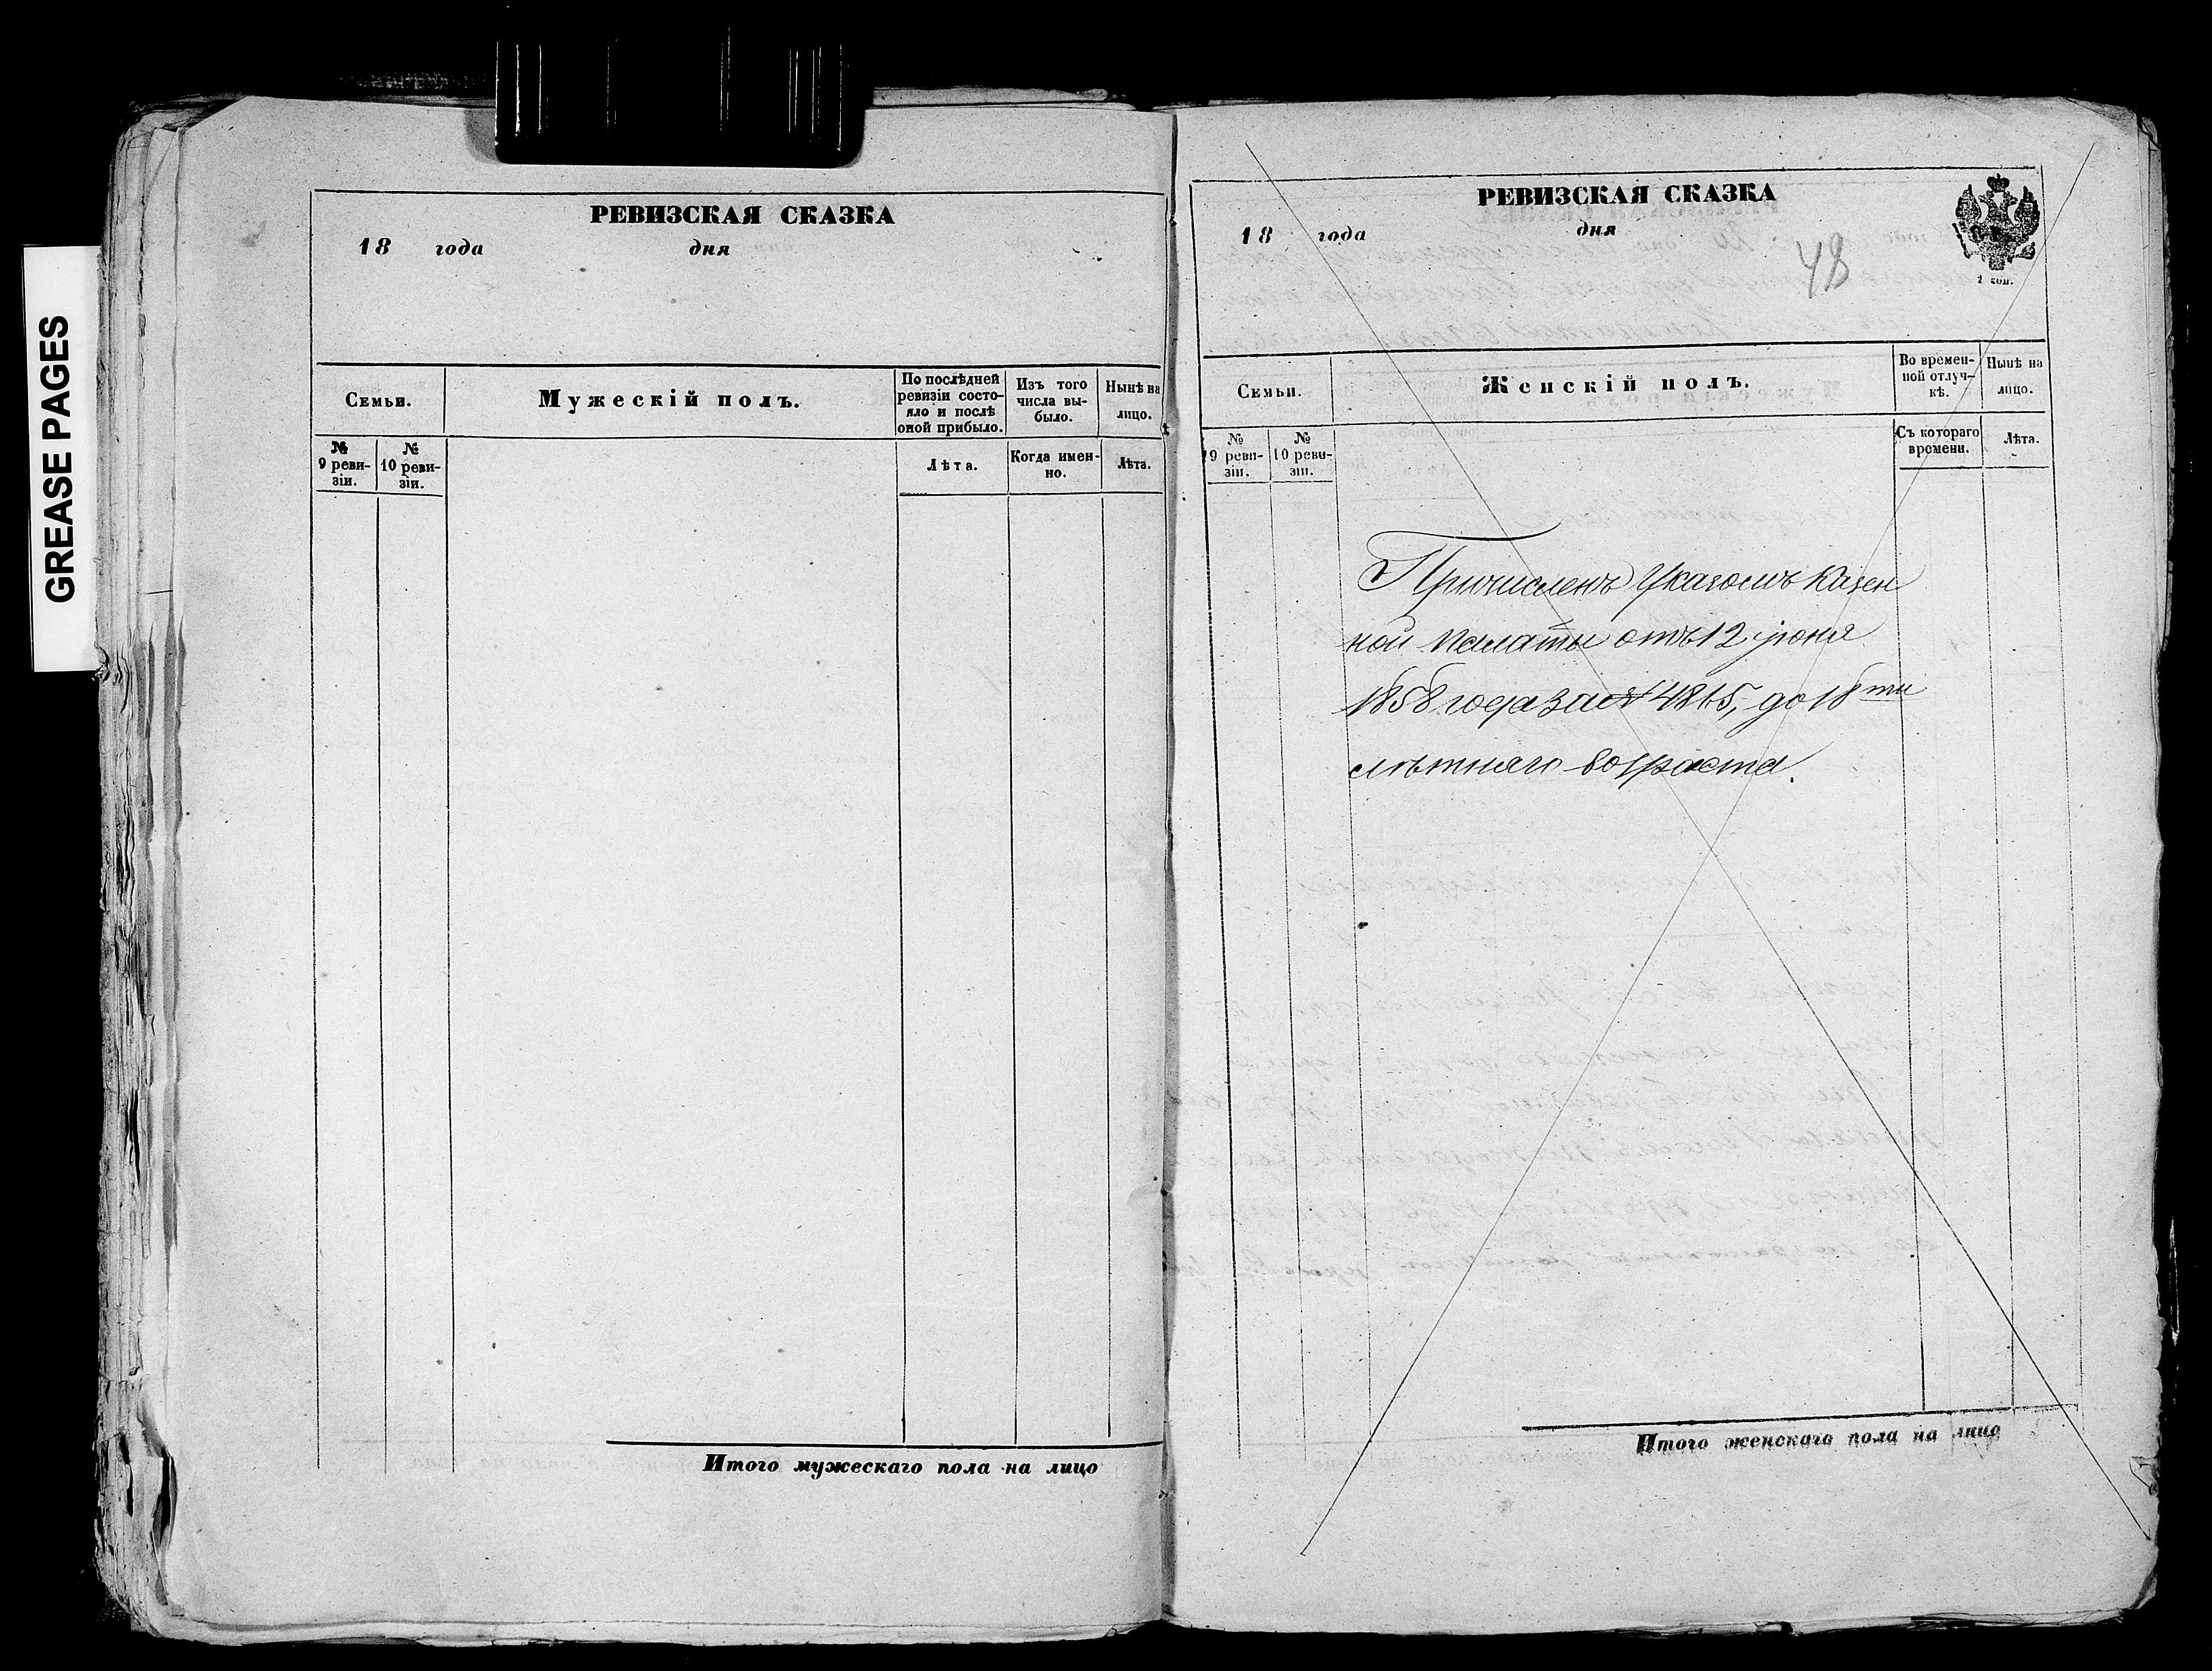 GREASE PAGES
РЕВИЗСКАЯ СКАЗКА
18 года дня
Семьи.
Мужескій полъ.
По послѣдней
ревизіи состо-
яло и послѣ
оной прибыло.
Изъ того
числа вы-
было.
Нынѣ на
лицо.
№
9 реви-
зіи.
№
10 реви-
зіи.
Лѣта.
Когда имен-
но.
Лѣта.
Итого мужескаго пола на лицо
РЕВИЗСКАЯ СКАЗКА
18 года дня
48
2 коп.
Семьи.
Женскій полъ.
Во времен-
ной отлуч-
кѣ.
Нынѣ на
лицо.
№
9 реви-
зіи.
№
10 реви-
зіи.
Съ котораго
времени.
Лѣта.
Причисленъ Указомъ Казен
ной Палаты отъ 12 іюня
1858 года за № 4815, до 18ти
лѣтняго возраста.
Итого женскаго пола на лицо